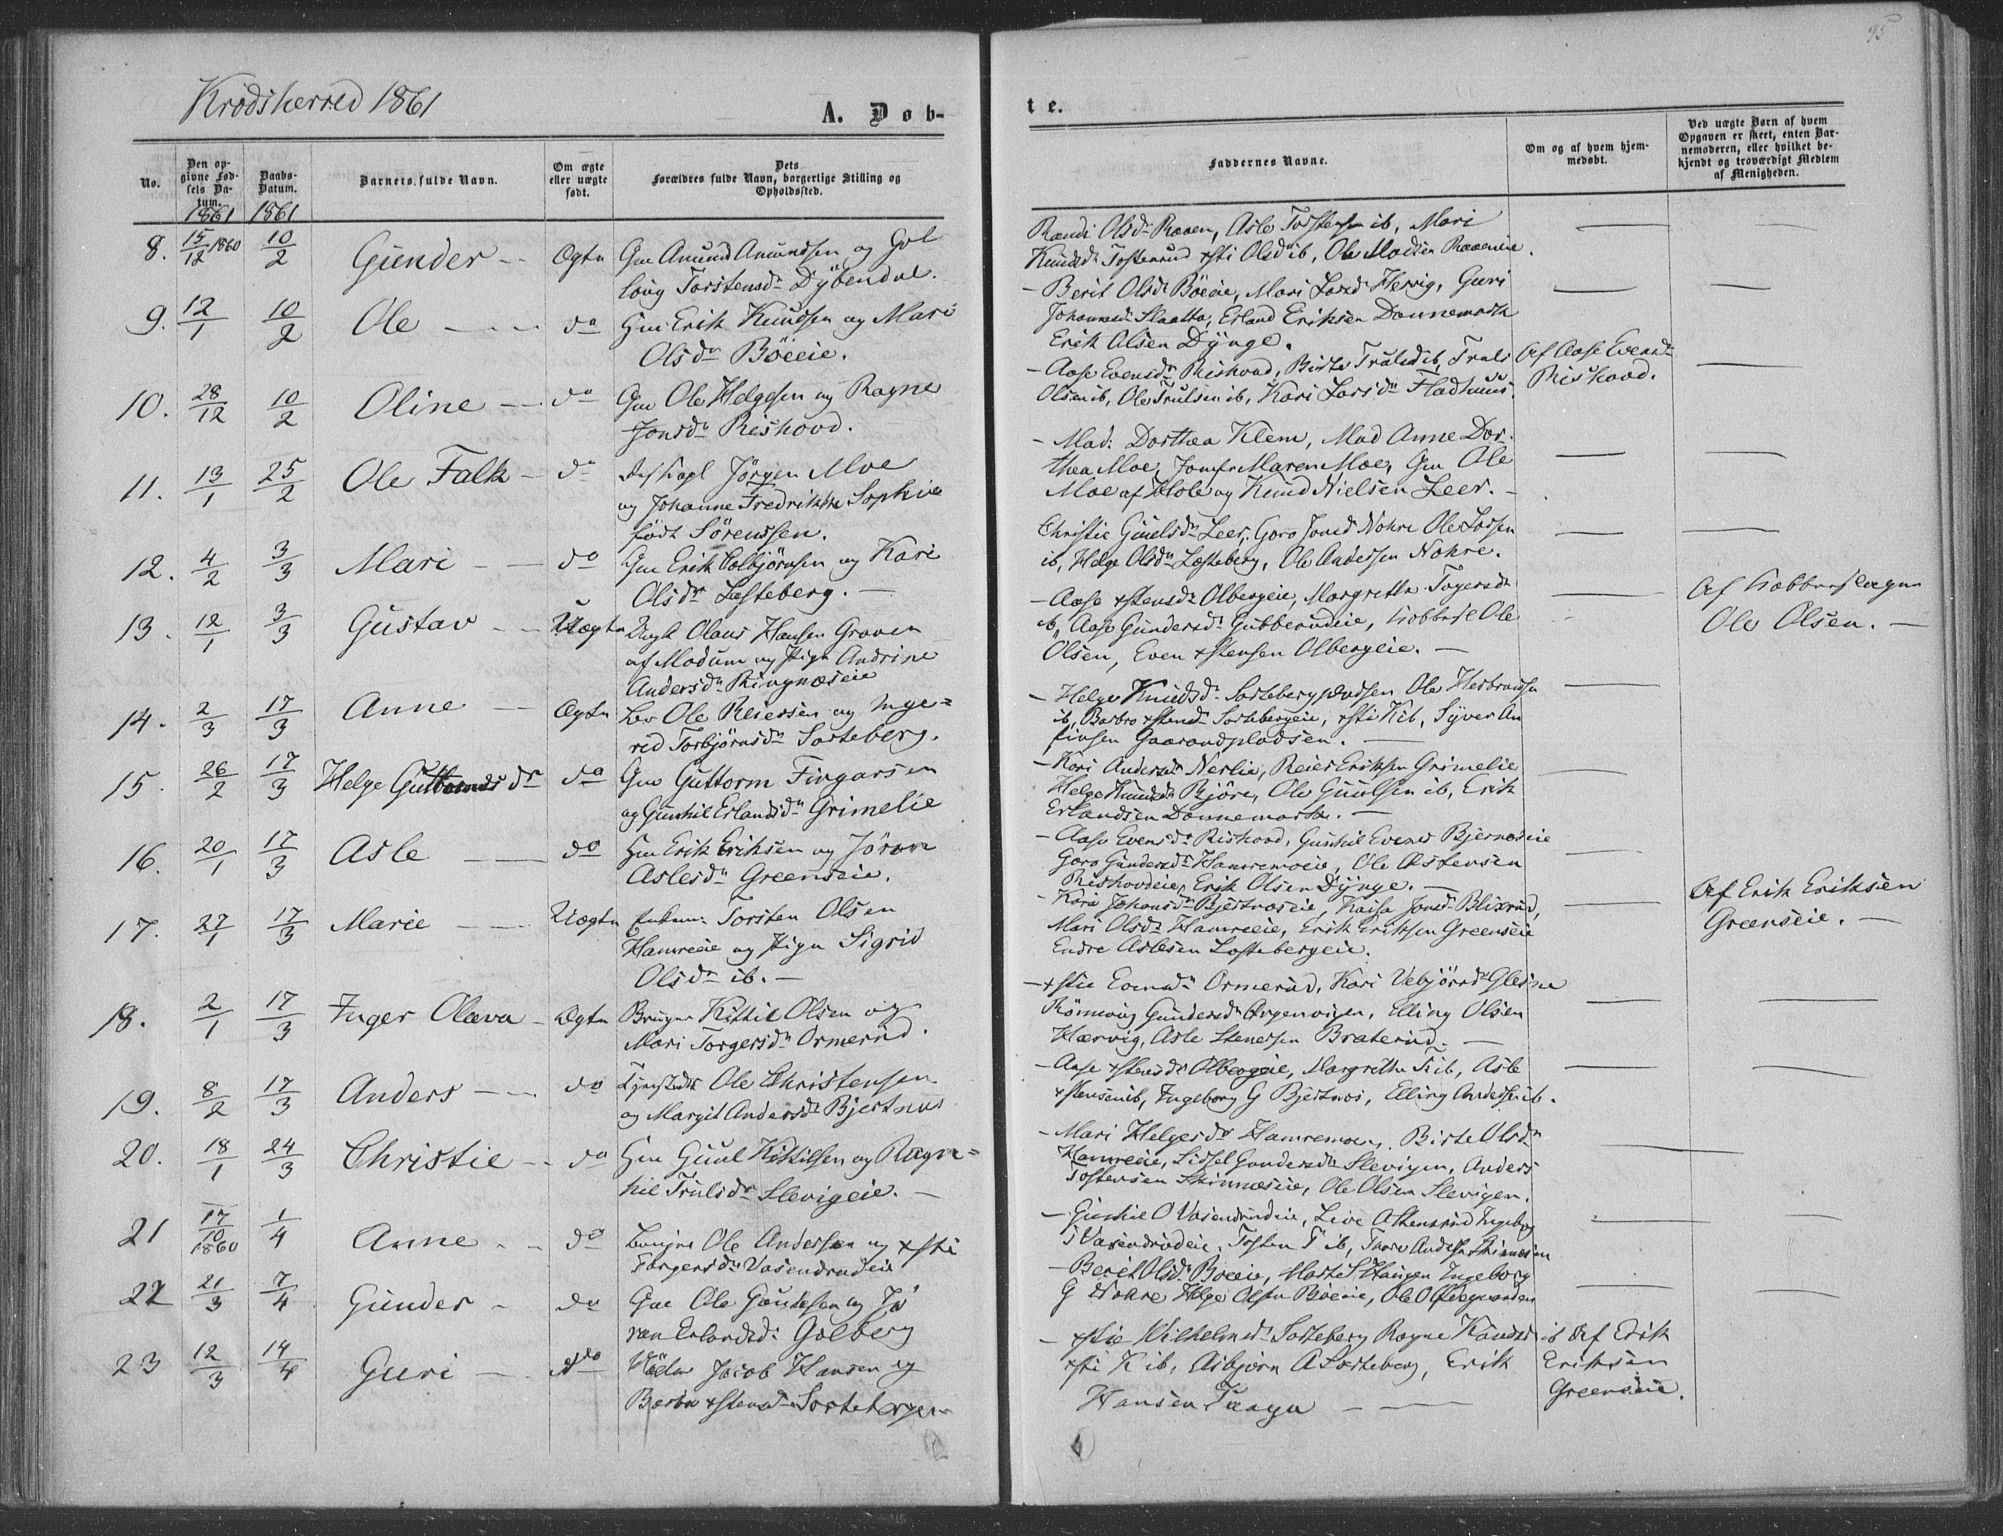 95
Krødsherred 1861
A. Døb-
te.
No.
Den op-
givne Fød-
sels Da-
tum.
Daabs-
Datum.
Barnets fulde Navn.
Om ægte
eller uægte
født.
Dets
Forældres fulde Navn, borgerlige Stilling og
Opholdssted.
Faddernes Navne.
Om og af hvem hjem-
medøbt.
Ved uægte Børn af hvem
Opgaven er skeet, enten Bar-
nemoderen, eller hvilket be-
kjendt og troværdigt Medlem
af Menigheden.
1861 1861
8. 15/12 1860 10/2 Gunder Ægte Gm Amund Amundsen og Gol
loug Torstensdr Dybendal.
Randi Olsdr Raaen, Asle Tostensen ib, Mari
Knudsdr Tostenrud, Olsdr ib, Ole Madsen
9. 12/1 10/2 Ole do Hm Erik Knudsen og Mari
Olsdr Böeie.
Berit Olsdr Böeie, Mari Larsd Hervig, Guri
Johannesdr Slaatta, Erland Eriksen Donnemoth
Erik Olsen Dynge.
10. 28/12 10/2 Oline do Gm Ole Helgesen og Ragne
Jonsdr Rishovd.
Aase Evensdr Rishovd, Birte Trulsd ib, Truls
Olsen ib, Ole Trulsen ib, Kari Larsdr Fladhuus.
Af Aase Evensdr
Rishovd.
11. 13/1 25/2 Ole Falk do Res Kapl Jörgen Moe
og Johanne Fredrikke Sophie
født Sörenssen.
Mad: Dorthea Klem, Mad Anne Dor-
thea Moe, Jomfr Maren Moe, Gm Ole
Moe af Hole og Knud Nielsen Leer.
12. 4/2 3/3 Mari do Gm Erik Colbjörnsen og Kari
Olsdr Lesteberg.
Christie Gulsdr Leer, Goro Jonsd Nohre Ole Larsen
ib, Helge Olsdr Lesteberg, Ole Andersen Nohre.
13. 12/1 3/3 Gustav Uægte Ungk Olaus Hansen Graven
af Modum og Pige Andrine
Andersdr Ringnæseie
Aase Xstensdr Olbergeie, Margrethe Togersdr
ib, Aase Gundersdr Gubberudeie, Kobbersl Ole
Olsen, Even Xstensen Olbergeie.
Af Kobberslager
Ole Olsen.
14. 2/3 17/3 Anne Ægte Lev Ole Reiersen og Inge-
red Torbjörnsdr Sorteberg.
Helge Knudsdr Sortebergpladsen Ole Herbrandsen
ib, Barbro Xstensdr Sortebergeie, Xsti K ib, Syver An
finsen Gaarandpladsen.
15. 26/2 17/3 Helge Guttormsdr do Gm Guttorm Fingarsen
og Gunhil Erlandsdr Grimelie
Kari Andersdr Nerlie, Reier Eriksen Grimelie
Helge Knudsdr Björe, Ole Guulsen ib, Erik
Erlandsen Donnemoth.
16. 20/1 17/3 Asle do Hm Erik Eriksen og Jörren
Aslesdr Greenseie.
Aase Evensdr Rishovd, Gunhil Evensd Bjernæseie
Goro Gundersdr Hamremoeie, Ole Østensen
Rishovdeie, Erik Olsen Dynge.
17. 27/1 17/3 Marie Uægte Enkem: Torsten Olsen
Hamreeie og Pige Sigrid
Olsdr ib.
Kari Johansdr Bjertnæseie, Kaisa Jonsd Blixrud,
Mari Olsdr Hamreeie, Erik Eriksen Greenseie
Endre Aslesen Lestebergeie.
Af Erik Eriksen
Greenseie.
18. 2/1 17/3 Inger Olava Ægte Bruger Kittil Olsen og
Mari Torgersdr Ormerud.
Xstie Evensdr Ormerud, Kari Vebjörnsdr Glesne
Rönnoug Gundersdr, Elling Olsen
Hærvig, Asle Stenersen Braterud.
19. 8/2 17/3 Anders do Ole Christensen
og Margit Andersdr Bjertnæs
Aase Xstensdr Olbergeie, Margrethe T ib, Asle
Xstensen ib, Ingeborg G Bjertnæs, Elling Andersen ib.
20. 18/1 24/3 Christie do Hm Guul Kittilsen og Ragn-
hil Trulsdr Slevigeie.
Mari Helgesdr Hamremoen, Birte Olsdr
Hamreeie, Sidsel Gundersdr Slevigen, Anders
Tostensen Skinnæseie, Ole Olsen Slevigen.
21 17/10 1860 1/4 Anne do Ole Andersen og Xsti
Torgersdr Vasendrudeie
Gunhil O Vasendrudeie, Live A Stensrud Ingeborg
T Vasendrudeie, Tosten T ib, Tore Anders Skinnesen
22 21/3 7/4 Gunder do Gm Ole Gundersen og Jö
ran Erlandsd: Golberg
Berit Olsdr Böeie, Marte S Haugen Ingeborg
G Nohre Helge Olsen Böeie, Ole O
23 12/3 14/4 Guri do Jacob Hansen og
Barbro Xstensdr Sortebergeie
Xstie Wilhelmsdr Sorteberg Ragne Knudsd ib
Xsti K ib, Asbjörn A Sorteberg, Erik
Hansen
Af Erik
Eriksen
Greenseie.